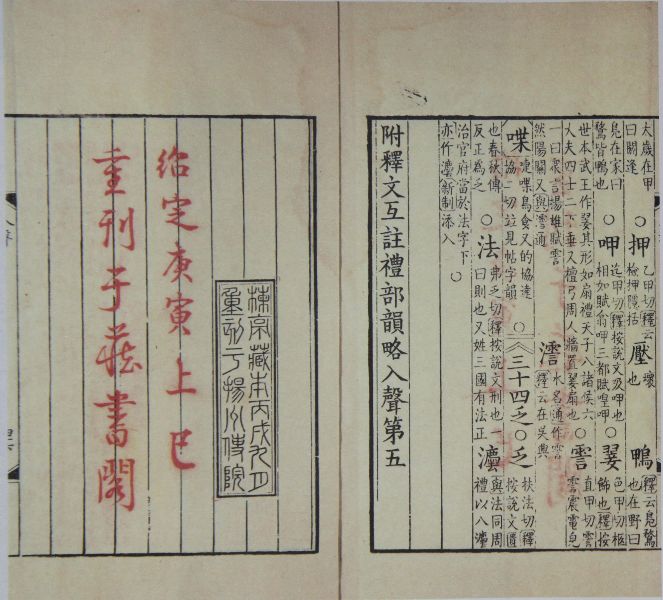 太歲在甲
曰閼逢
○押
乙甲切釋云
檢押隱括
壓
壞
也
鴨
釋云鳧鶩
也在野曰
鳧在家曰
鶩皆鴨也
○呷
迄甲切釋按說文吸呷也
相如賦翕呷三都賦喤呷
○翣
色甲切柩
飾也釋按
世本武王作翣其形如扇禮天子八諸侯六
大夫四士二下垂又檀弓周人牆置翣扇也
○霅
直甲切雲
霅震電皃
一曰衆言揚雄賦霅
水名通作霅
釋云在吳興
喋
啑喋鳥食又的協達
協二切竝見帖字韻
○
三十四乏○乏
扶法切釋
按說文匱
也春秋傳
反正為乏
○法
弗乏切釋按說文刑也一
曰則也又姓三國有法正
灋
與法同周
禮以八灋
治官府當於法字下
亦作灋新制添入
○
附釋文互註禮部韻略入聲第五
楝亭藏本丙戌九月
重刻于揚州使院
紹定庚寅上巳
重刊于藏書閣